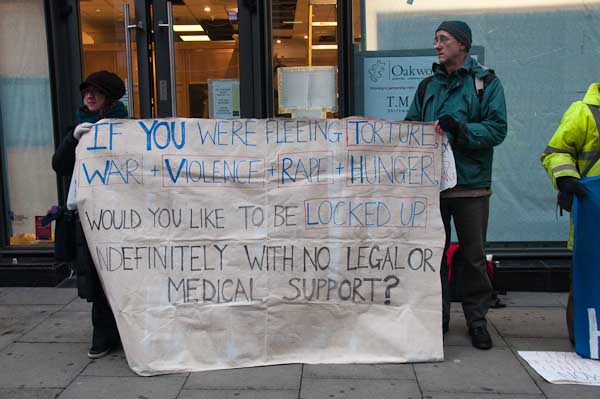 Oakwo
T.M
IF YOU WERE FLEEING TORTURE,
WAR + VIOLENCE + RAPE + HUNGER,
WOULD YOU LIKE TO BE LOCKED UP
INDEFINITELY WITH NO LEGAL OR
MEDICAL SUPPORT?